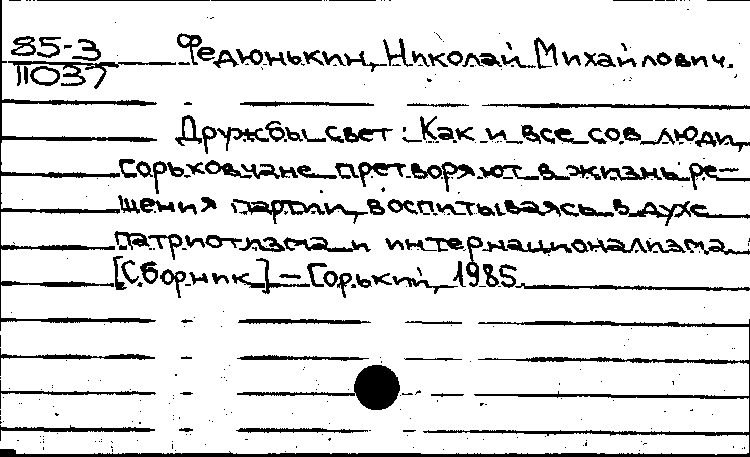 85-3
11037
Федюнькин, Николай Михайлович.
Дружбы свет: Как и все сов люди,
горьковчане претворяют в жизнь ре-
шения партии, воспитываясь в духе
патриотизма и интернационализма:
[Сборник] – Горький, 1985.